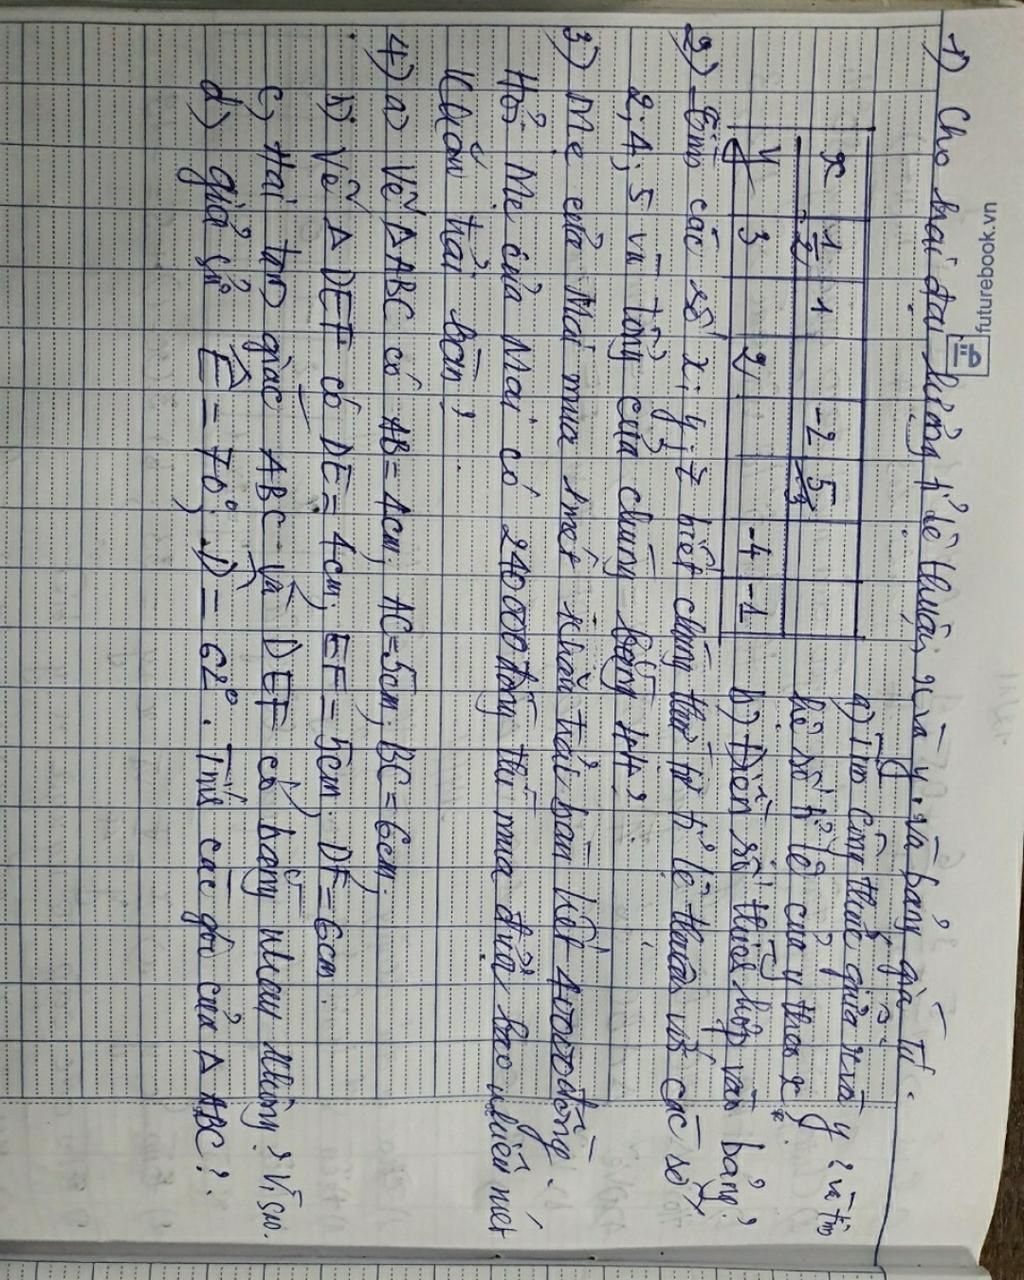 futurebook.vn
1) Cho hai đại lượng tỉ lệ thuận x và y và bảng giá trị.
x 1/2 1 -2 5
y 3 2 -4 -1
a) Tìm công thức giữa x và y? và tìm
hệ số tỉ lệ của y theo x.
b) Điền số thích hợp vào bảng?
2) Tìm các số x; y; z biết chúng thứ tự tỉ lệ thuận với các số
2; 4; 5 và tổng của chúng bằng 44?
3) Mẹ của Mai mua 1 mét khăn trải bàn hết 40000 đồng.
Hỏi Mẹ của Mai có 240000 đồng thì mua được bao nhiêu mét
khăn trải bàn?
4) a) Vẽ Δ ABC có AB = 4cm; AC = 5cm; BC = 6cm;
b) Vẽ Δ DEF có DE = 4cm; EF = 5cm; DF = 6cm.
c) Hai tam giác ABC và DEF có bằng nhau không? Vì sao.
d) giả sử Ê = 70°; D̂ = 62°. Tính các góc của Δ ABC?